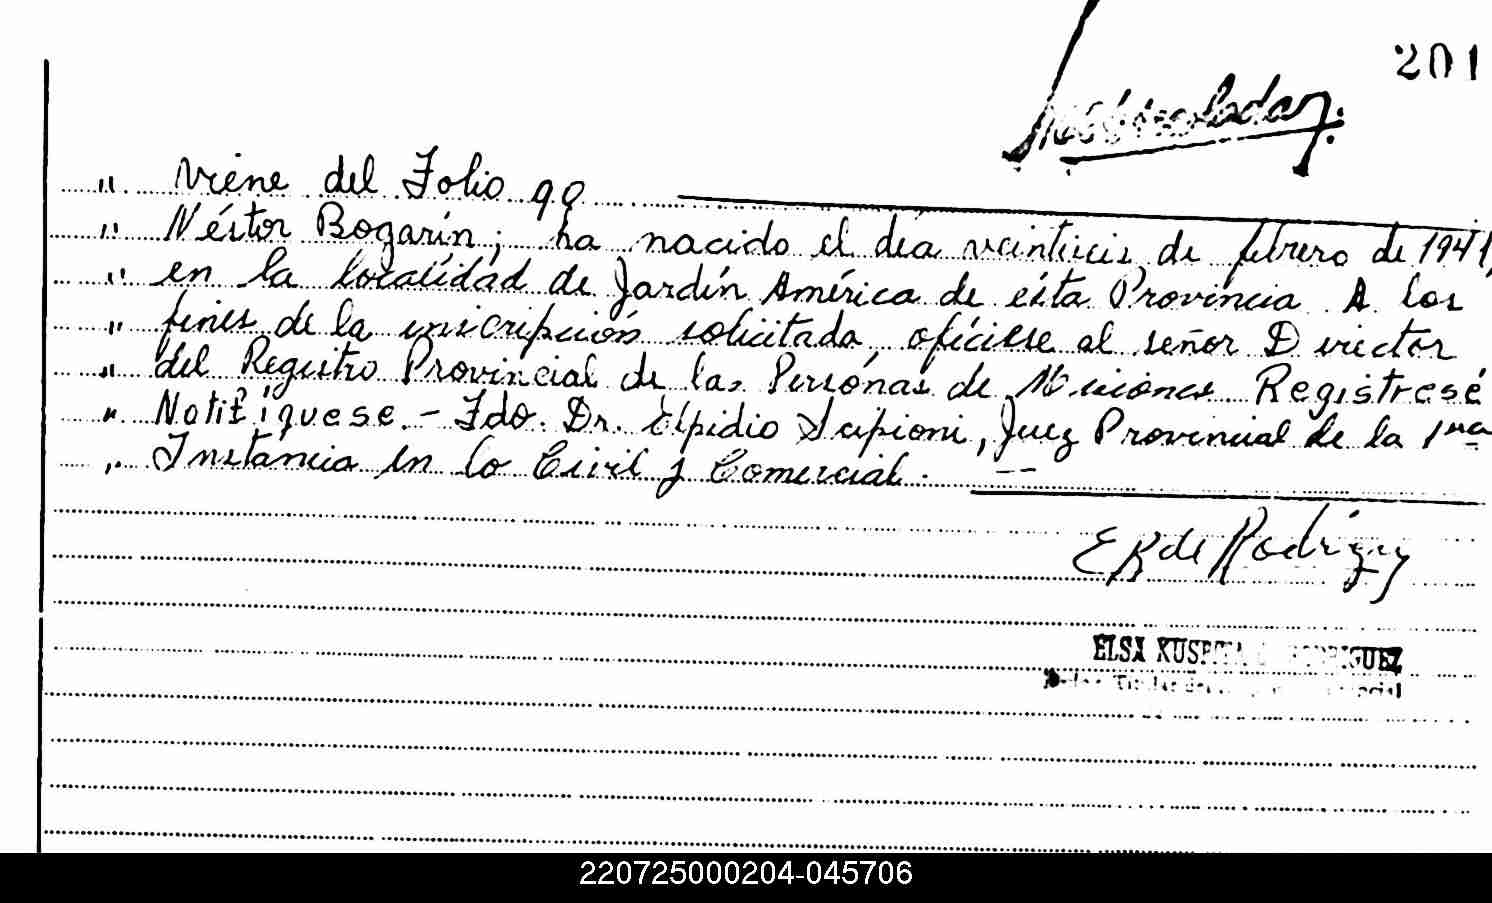 201
" Viene del Folio 90
" Néstor Bogarín; ha nacido el día veintiseis de febrero de 1941,
" en la localidad de Jardín América de ésta Provincia. A los
" fines de la inscripción solicitada, ofíciese al señor Director
" del Registro Provincial de las Personas de Misiones Registresé
" Notifíquese. - Fdo. Dr. Elpidio Scipioni, Juez Provincial de la 1ra
" Instancia en lo Civil y Comercial. --
E K de Rodríguez
ELSA RODRIGUEZ
220725000204-045706